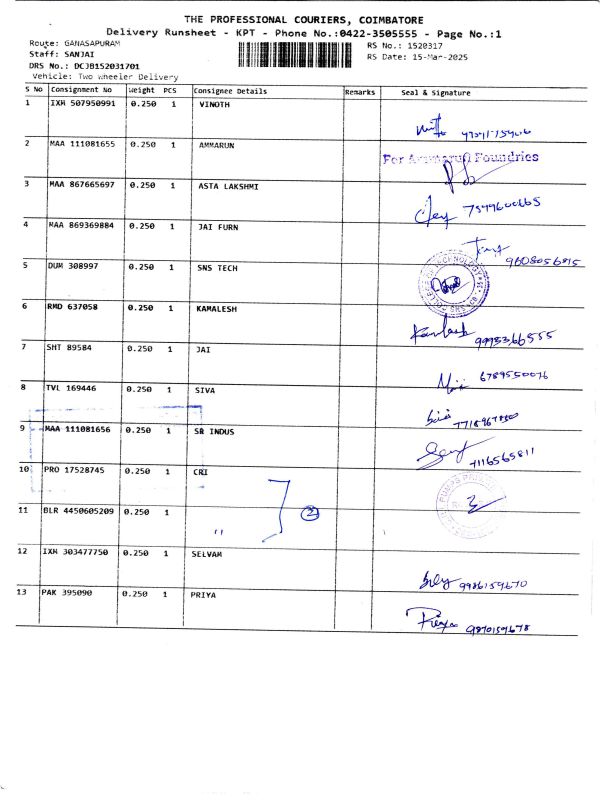 THE PROFESSIONAL COURIERS, COIMBATORE
Delivery Runsheet - KPT - Phone No.:0422-3505555 - Page No.:1
Route: GANASAPURAM
RS No.: 1520317
Staff: SANJAI
RS Date: 15-Mar-2025
DRS No.: DCJB152031701
Vehicle: Two Wheeler Delivery
S No Consignment No Weight PCS Consignee Details Remarks Seal & Signature
1 IXM 507950991 0.250 1 VINOTH
2 MAA 111081655 0.250 1 AMMARUN
For Foundries
3 MAA 867665697 0.250 1 ASTA LAKSHMI
Jey 7549600665
4 MAA 869369884 0.250 1 JAI FURN
9608056815
5 DUM 308997 0.250 1 SNS TECH
COLLEGE OF TECHNOLOGY SNS
6 RMD 637058 0.250 1 KAMALESH
Kamlesh 9993366555
7 SHT 89584 0.250 1 JAI
6789550076
8 TVL 169446 0.250 1 SIVA
Siva
9 MAA 111081656 0.250 1 SR INDUS
7116565811
10 PRO 17528745 0.250 1 CRI
PUMPS
11 BLR 4450605209 0.250 1 " 2
12 IXM 303477750 0.250 1 SELVAM
9986159670
13 PAK 395090 0.250 1 PRIYA
Priya 9870159678